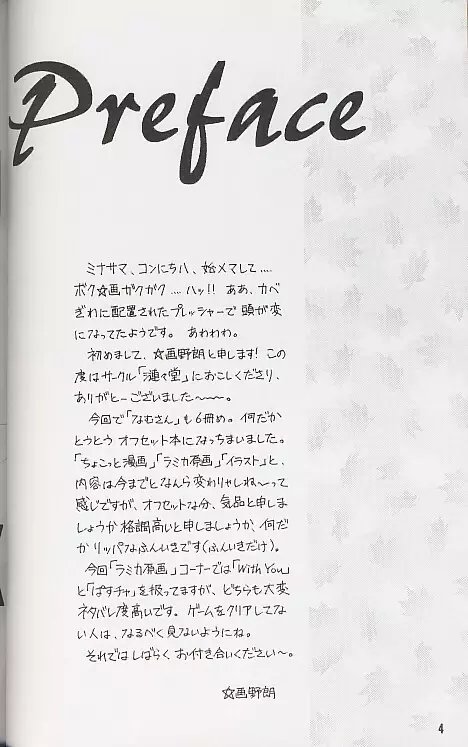 Preface
ミナサマ、コンにちハ、始メマして‥‥
ボク☆画ガクガク‥‥ハッ!! ああ、カベ
ぎわに配置されたプレッシャーで頭が変
になってたようです。あわわわ。
初めまして、☆画野朗と申します!この
度はサークル「漣々堂」におこしくださり、
ありがとーございました〜〜〜。
今回で「なむさん」も6冊め。何だか
とうとうオフセット本になっちまいました。
「ちょこっと漫画」「ラミカ原画」「イラスト」と、
内容は今までとなんら変わりゃしね〜って
感じですが、オフセットな分、気品と申しま
しょうか格調高いと申しましょうか、何だ
かリッパなふんいきです(ふんいきだけ)。
今回「ラミカ原画」コーナーでは「With You」
と「ぱすチャ」を扱ってますが、どちらも大変
ネタバレ度高いです。ゲームをクリアしてな
い人は、なるべく見ないようにね。
それではしばらくお付き合いください〜。
☆画野朗
4